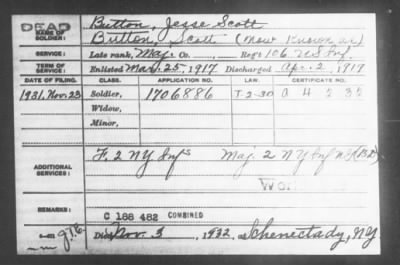 DEAD
NAME OF SOLDIER:
Button, Jesse Scott
Button, Scott (now known as)
SERVICE:
Late rank, Maj. Co. Reg't 106 US Inf.
TERM OF SERVICE:
Enlisted Mar. 25, 1917. Discharged Apr. 2 1919
DATE OF FILING. CLASS. APPLICATION NO. LAW. CERTIFICATE NO.
1931, Nov. 23 Soldier, 1706886 T-2-30 A 4 2 32
Widow,
Minor,
ADDITIONAL SERVICES:
F. 2 NY Inf. Maj. 2 NY Inf
REMARKS:
C 188 482 COMBINED
Died Nov. 3, 1932, at Schenectady, NY